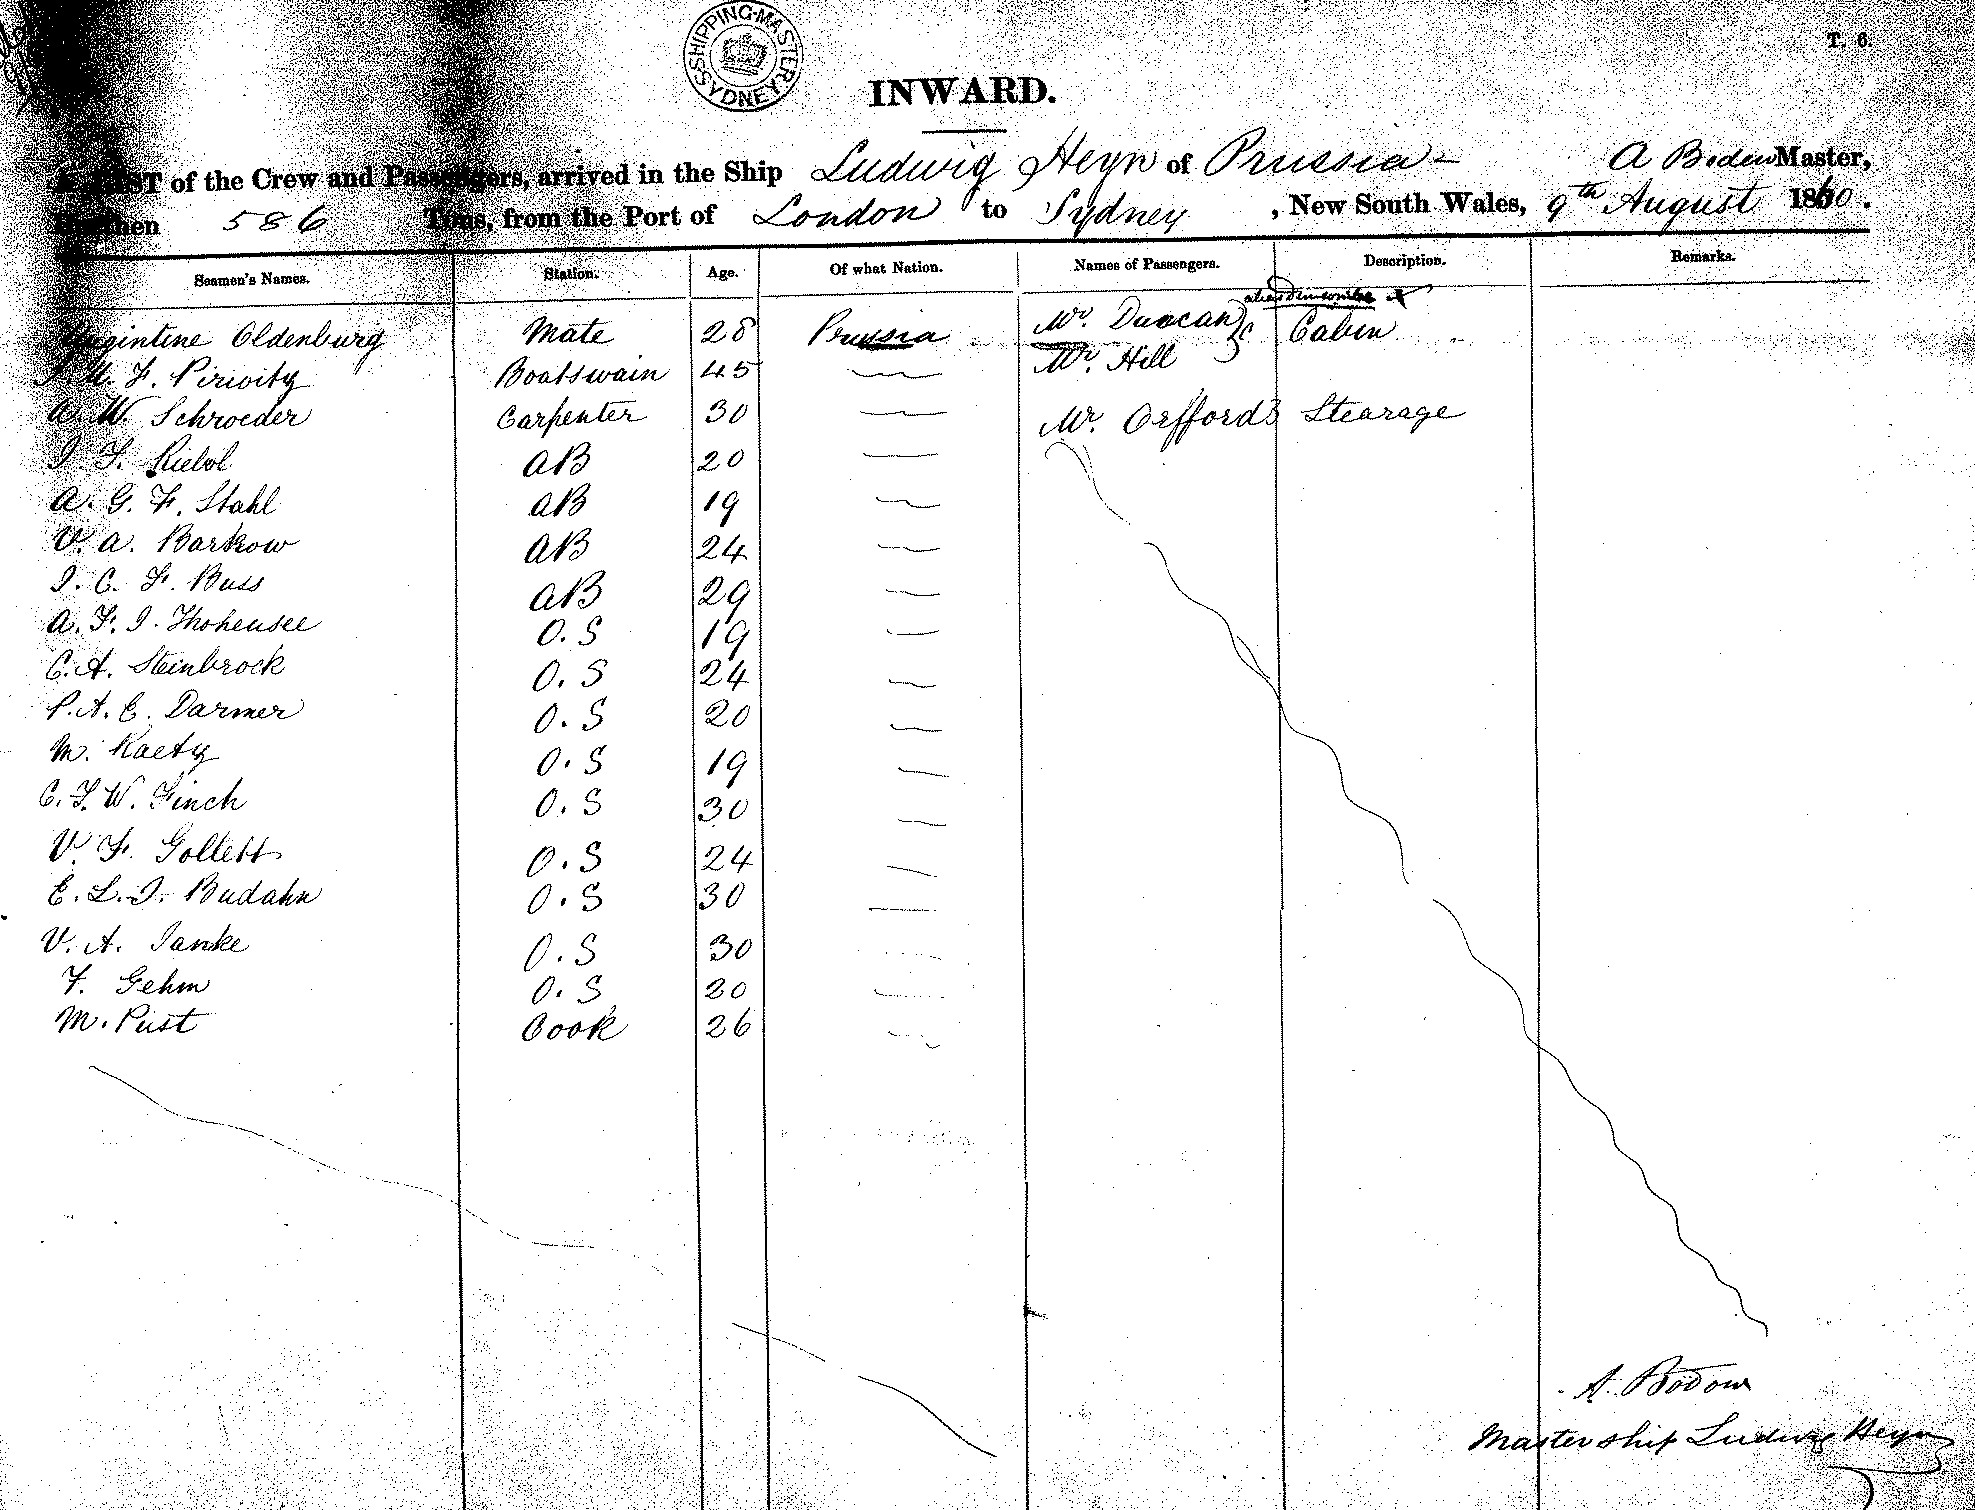 SHIPPING MASTER SYDNEY
T. 6.
INWARD.
A LIST of the Crew and Passengers, arrived in the Ship Ludwig Heyn of Prussia - A Boden Master,
Burthen 586 Tons, from the Port of London to Sydney, New South Wales, 9th August 1860.
Seamen's Names. Station. Age. Of what Nation. Names of Passengers. Description. Remarks.
alias
Oldenburg Mate 28 Prussia Mr. Duncan Cabin
F. Pirivity Boatswain 45 Mr. Hill
W Schroeder Carpenter 30 Mr. Orfford Stearage
AB 20
A. G. F. Stahl AB 19
V. A. Barkow AB 24
I. C. F. Buss AB 29
A. F. I. Thohensee O. S 19
C. A. Steinbrock O. S 24
P. A. C. Darmer O. S 20
M. Raety O. S 19
C. F. W. Finch O. S 30
V. F. Gollett O. S 24
E. L. I. Budahn O. S 30
V. A. Janke O. S 30
F. Gehm O. S 20
M. Pust Cook 26
A. Bodow
Master ship Ludwig Heyn